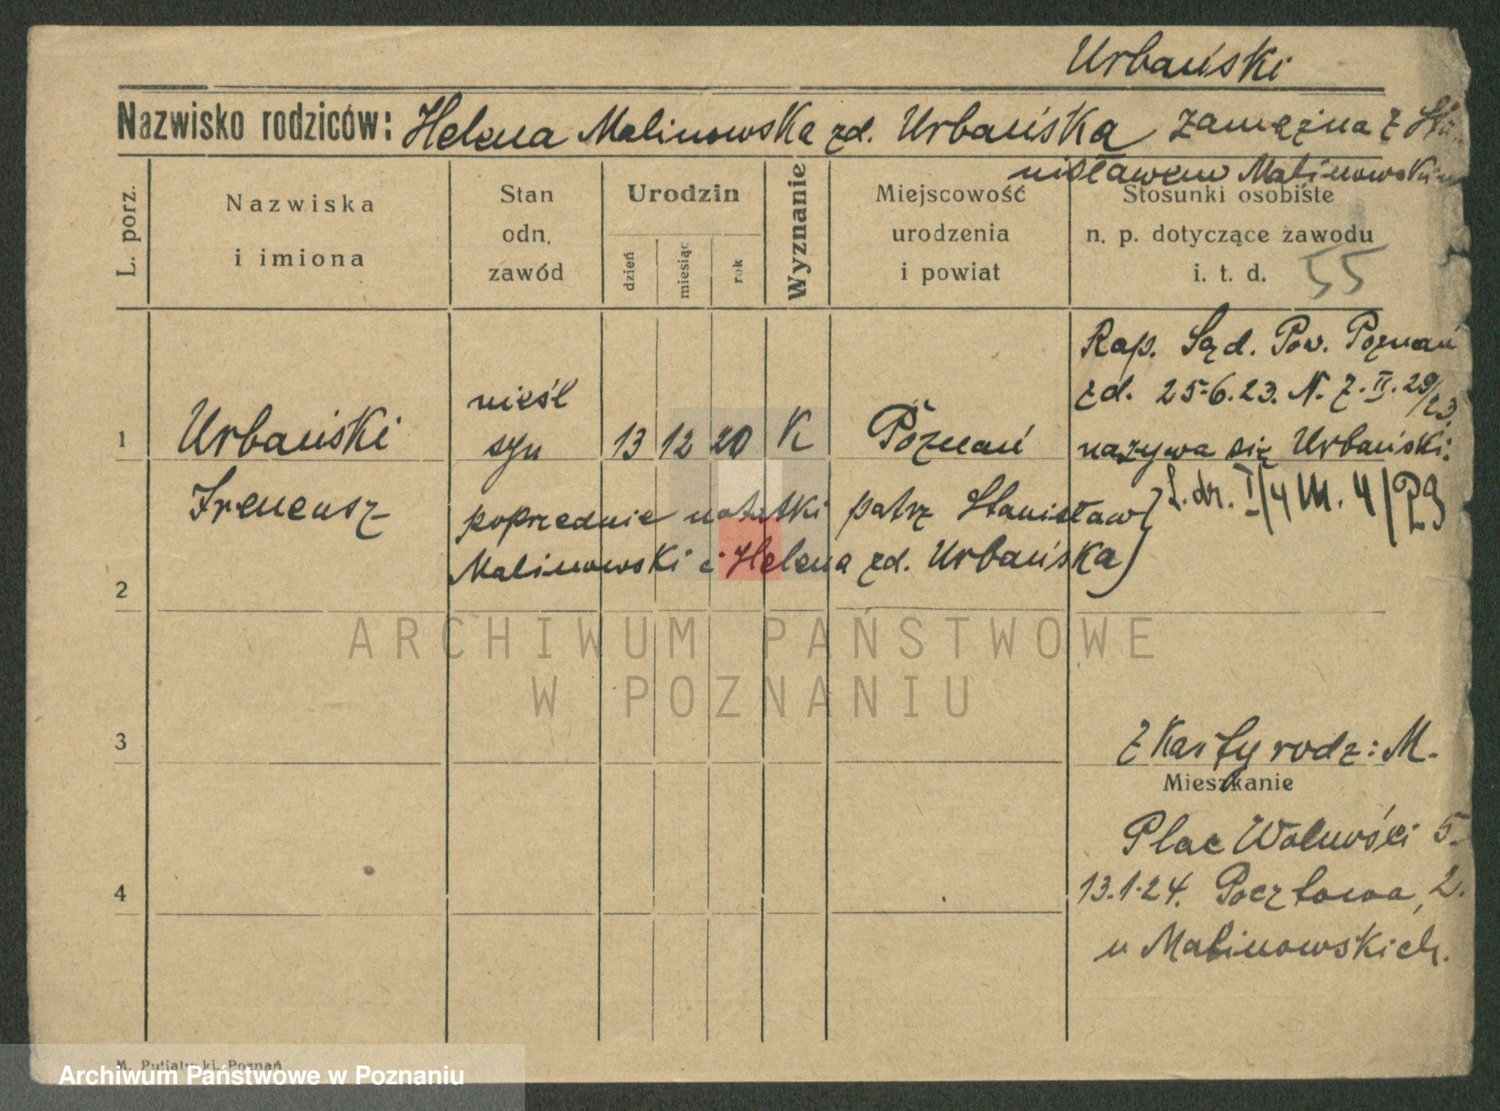 Urbański
Nazwisko rodziców: Helena Malinowska zd. Urbańska zamężna z Sta
nisławem Malinowskim
L. porz.
Nazwiska
i imiona
Stan
odn.
zawód
Urodzin
dzień
miesiąc
rok
Wyznanie
Miejscowość
urodzenia
i powiat
Stosunki osobiste
n. p. dotyczące zawodu
i. t. d. 55
Rap. Sąd. Pow. Poznań
zd. 25.6.23. N. Z. II. 29/23
1 Urbański nieśl syn 13 12 20 K Poznań nazywa się Urbański.
Ireneusz
poprzednie notatki patrz Stanisław
L. dz. I/4 M. 4/23
2 Malinowski i Helena zd. Urbańska)
ARCHIWUM PAŃSTWOWE
W POZNANIU
3
z Karty rodz: M.
Mieszkanie
Plac Wolności 5.
4
13.1.24. Pocztowa, 2.
u Malinowskich.
M. Putiatycki, Poznań
Archiwum Państwowe w Poznaniu